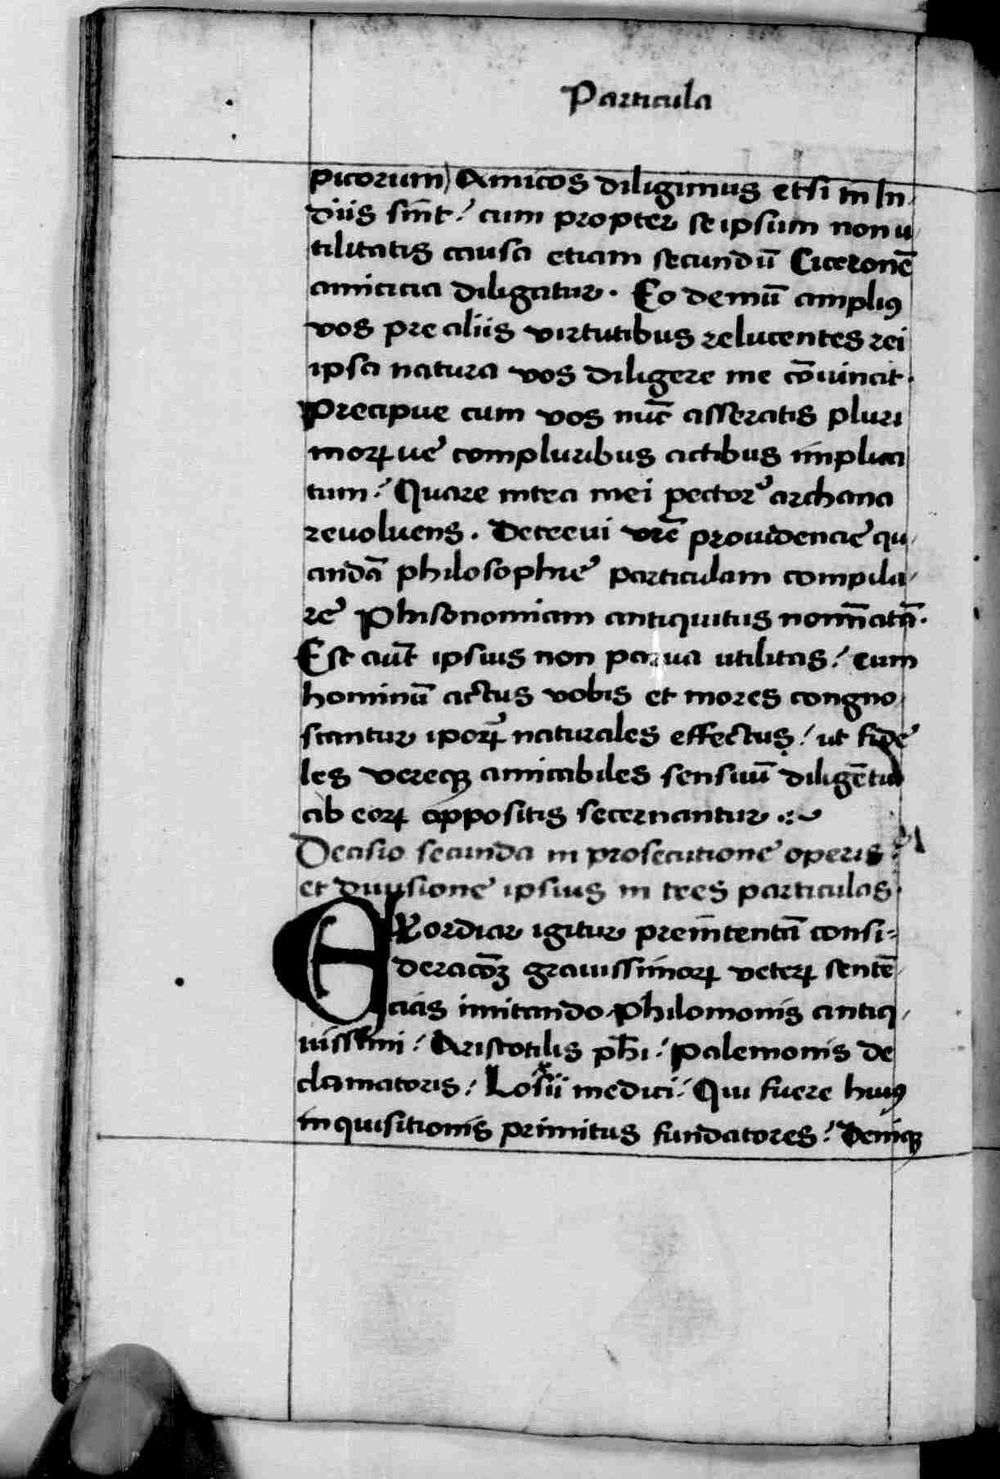 Particula
picorum) Amicos diligimus etsi in In
diis sint: cum propter se ipsum non u
tilitatis causa etiam secundū Ciceronē
amicicia diligatur. Eo demū ampliꝰ
vos pre aliis virtutibus relucentes rei
ipsa natura vos diligere me cōuincit.
Precipue cum vos nūc asseratis pluri
moꝝ ue compluribus actibus implica
tum: Quare intra mei pectorꝰ archana
revoluens. Decreui vrē prouidencie qu
andā philosophie particulam compila
re Phisonomiam antiquitus nomīatā.
Est aūt ipsius non parua utilitas: cum
hominū actus vobis et mores congno
scantur ipoꝝ naturales effectus: ut fide
les vereqꝫ amicabiles sensuū diligētia
ab eoꝝ oppositis secernantur
Decisio secunda in prosecutione operis
et diuisione ipsius in tres particulas.
EXordiar igitur premētentā consi
deracōꝫ grauissimoꝝ veteꝝ sentē
cias imitando Philomonis antiq
uissimi: Aristotilis pħi: Palemonis de
clamatoris: Loxii medici: Qui fuere huiꝰ
inquisitionis primitus fundatores: Deniqꝫ